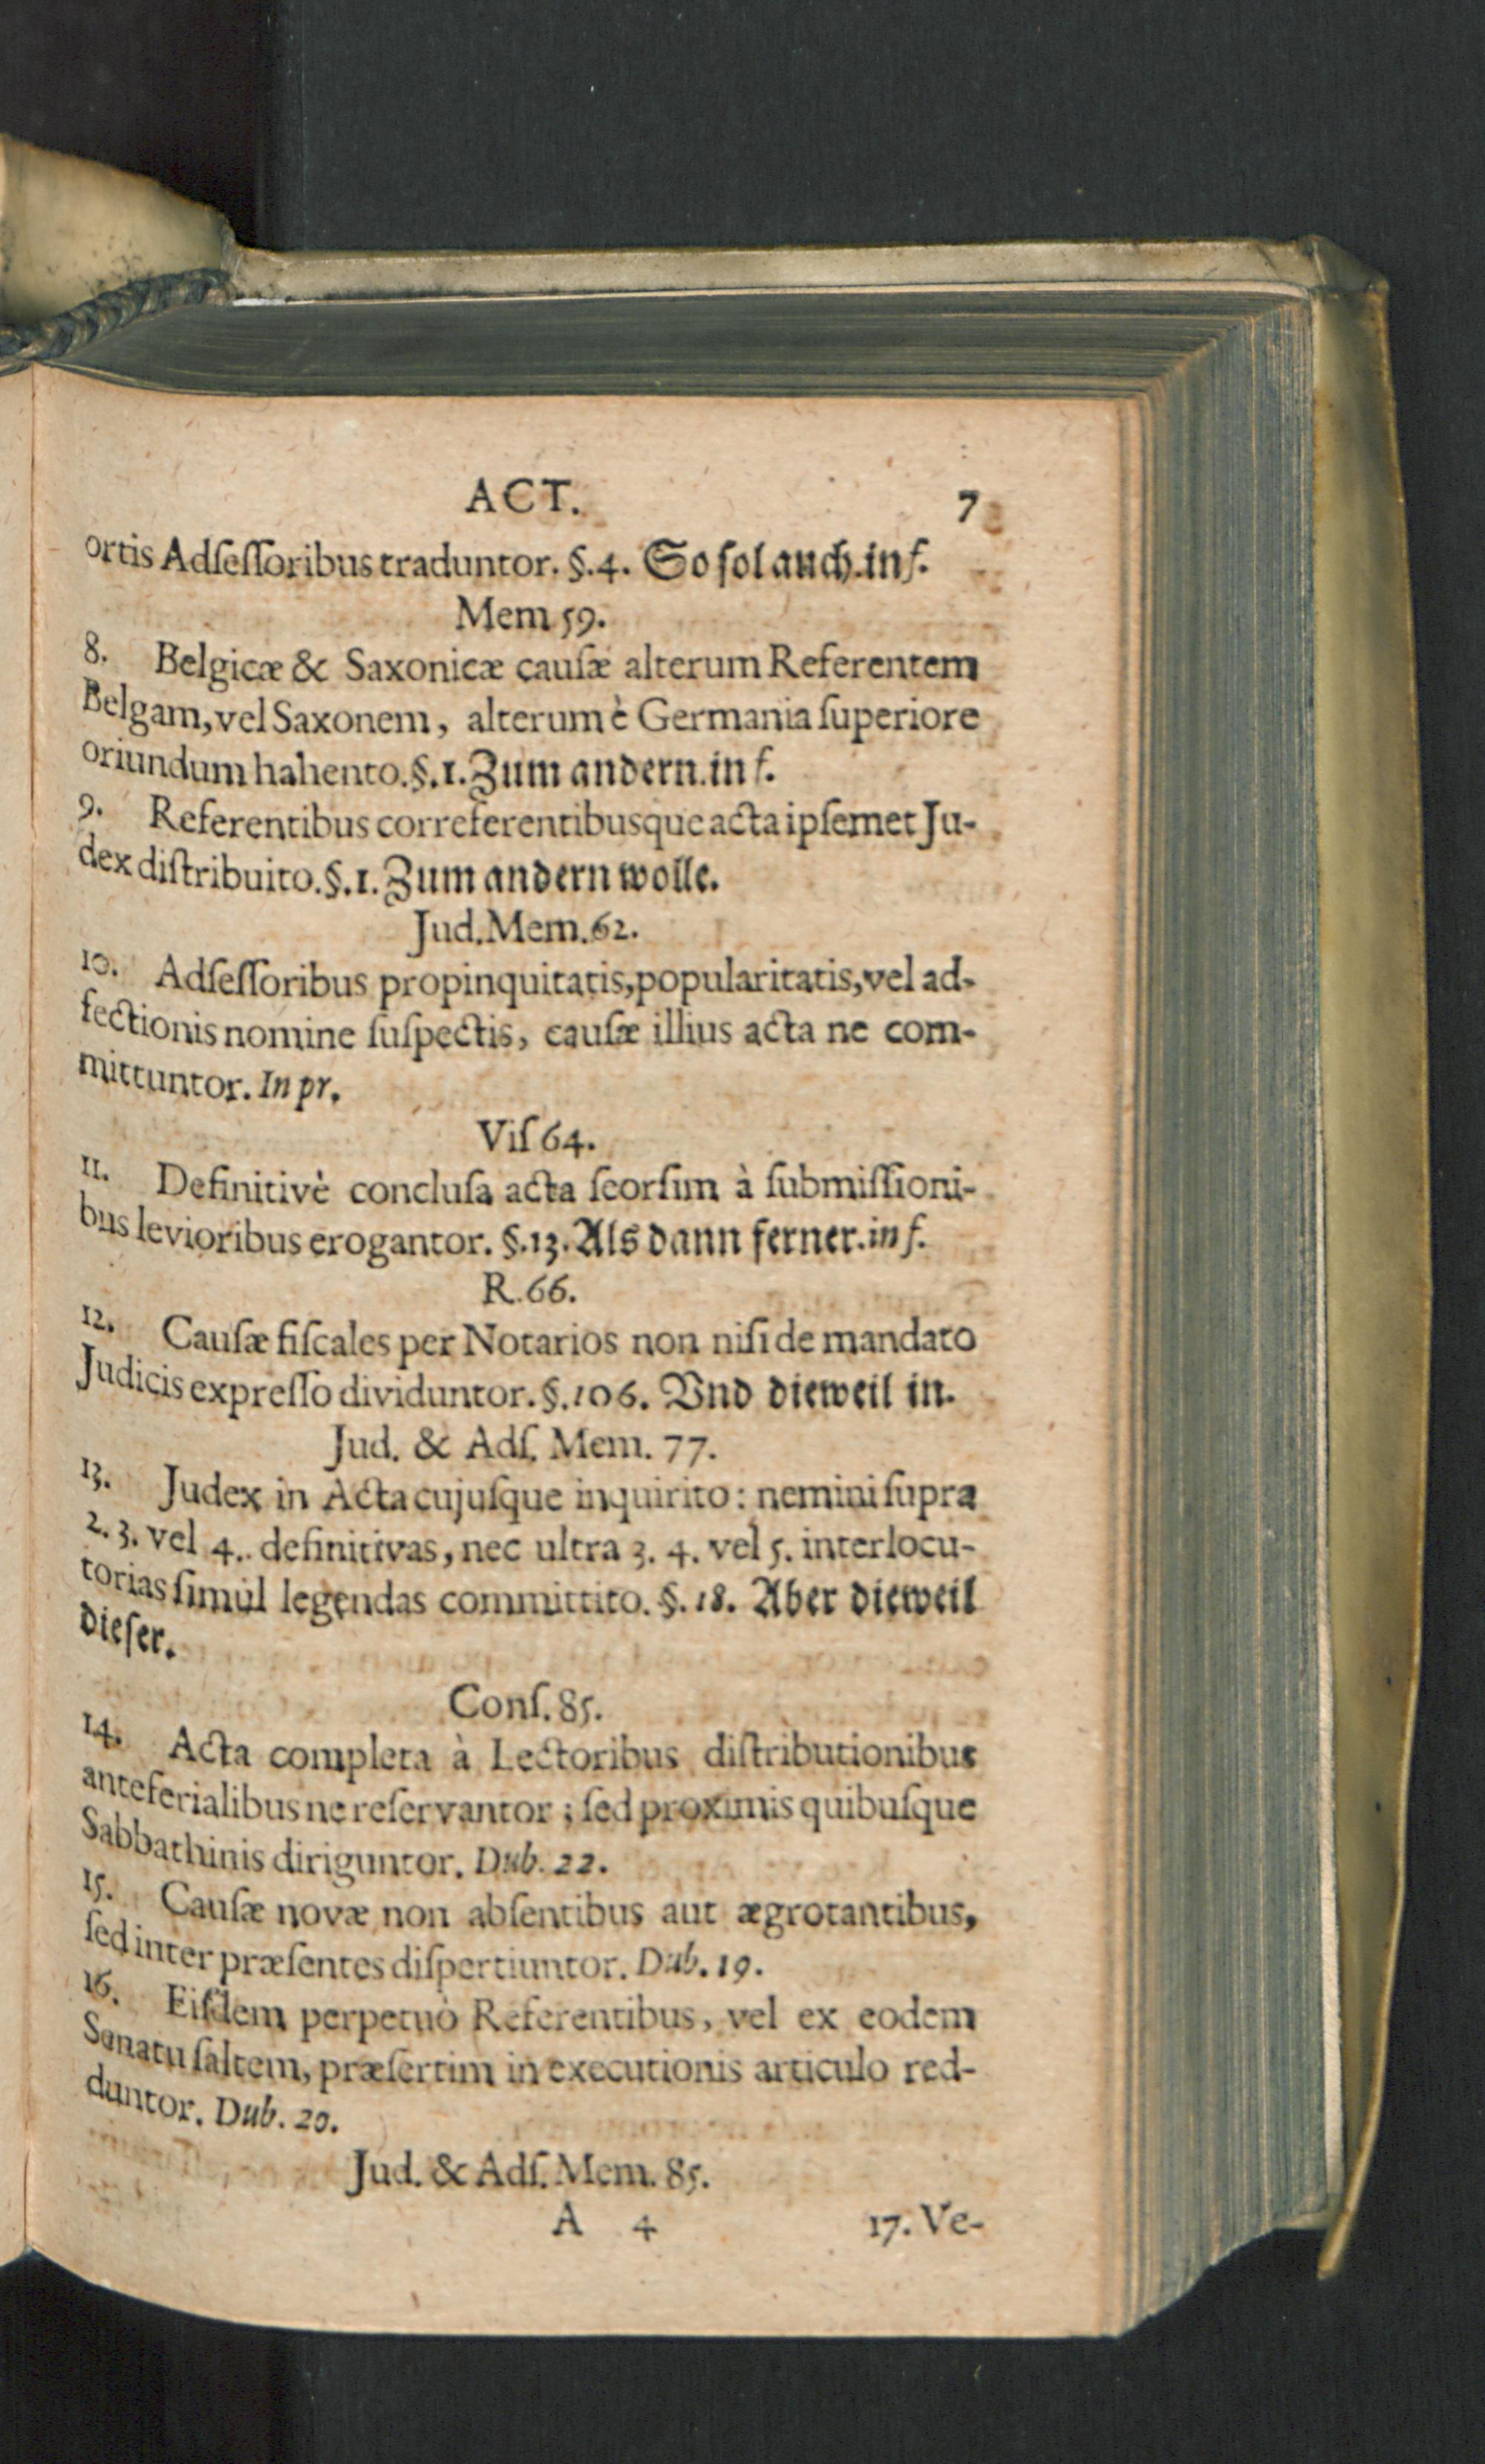 ACT. 7
ortis Adſeſſoribus traduntor. §.4. So ſol auch. in f.
Mem 59.
8. Belgicæ & Saxonicæ cauſæ alterum Referentem
Belgam, vel Saxonem, alterum è Germania ſuperiore
oriundum hahento. §.1. Zum andern. in f.
9. Referentibus correferentibusque acta ipſemet Ju-
dex diſtribuito. §.1. Zum andern wolle.
Jud. Mem. 62.
10. Adſeſſoribus propinquitatis, popularitatis, vel ad-
fectionis nomine ſuſpectis, cauſæ illius acta ne com-
mittuntor. In pr.
Viſ 64.
11. Definitivè concluſa acta ſeorſim à ſubmiſſioni-
bus levioribus erogantor. §.13. Als dann ferner. in f.
R. 66.
12. Cauſæ fiſcales per Notarios non niſi de mandato
Judicis expreſſo dividuntor. §.106. Vnd dieweil in.
Jud. & Adſ. Mem. 77.
13. Judex in Acta cujuſque inquirito: nemini ſupra
2. 3. vel 4. definitivas, nec ultra 3. 4. vel 5. interlocu-
torias ſimul legendas committito. §. 18. Aber dieweil
dieſer.
Conſ. 85.
14. Acta completa à Lectoribus diſtributionibus
anteferialibus ne reſervantor; ſed proximis quibuſque
Sabbathinis diriguntor. Dub. 22.
15. Cauſæ novæ non abſentibus aut ægrotantibus,
ſed inter præſentes diſpertiuntor. Dub. 19.
16. Eiſdem perpetuò Referentibus, vel ex eodem
Senatu ſaltem, præſertim in executionis articulo red-
duntor. Dub. 20.
Jud. & Adſ. Mem. 85.
A 4 17. Ve-